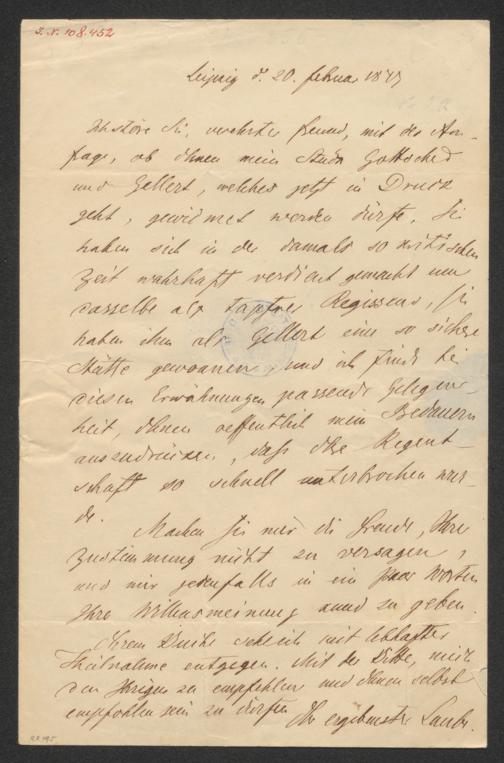 I. N. 108.452
Leipzig d. 20. Februar 18
Ich störe Sie, verehrter Freund, mit der An-
frage, ob Ihnen mein Stück Gottsched
und Gellert, welches jetzt in Druck
geht, gewidmet werden dürfe. Sie
haben sich in der damals so kritischen
Zeit wahrhaft verdient gemacht um
dasselbe als tapfrer Regisseur, Sie
haben ihm als Gellert eine so sichere
Stätte gewonnen, und ich finde bei
diesen Erwähnungen passende Gelegen-
heit, Ihnen oeffentlich mein Bedauern
auszudrücken, daß Ihre Regent-
schaft so schnell unterbrochen wur-
de.
Machen Sie mir die Freude, Ihre
Zustimmung nicht zu versagen,
und mir jedenfalls in ein paar Worten
Ihre Willensmeinung kund zu geben.
Ihrem Buche mit lebhafter
Theilnahme entgegen. Mit der Bitte, mich
den Ihrigen zu empfehlen und Ihnen selbst
empfohlen sein zu dürfen Ihr ergebenster Laube.